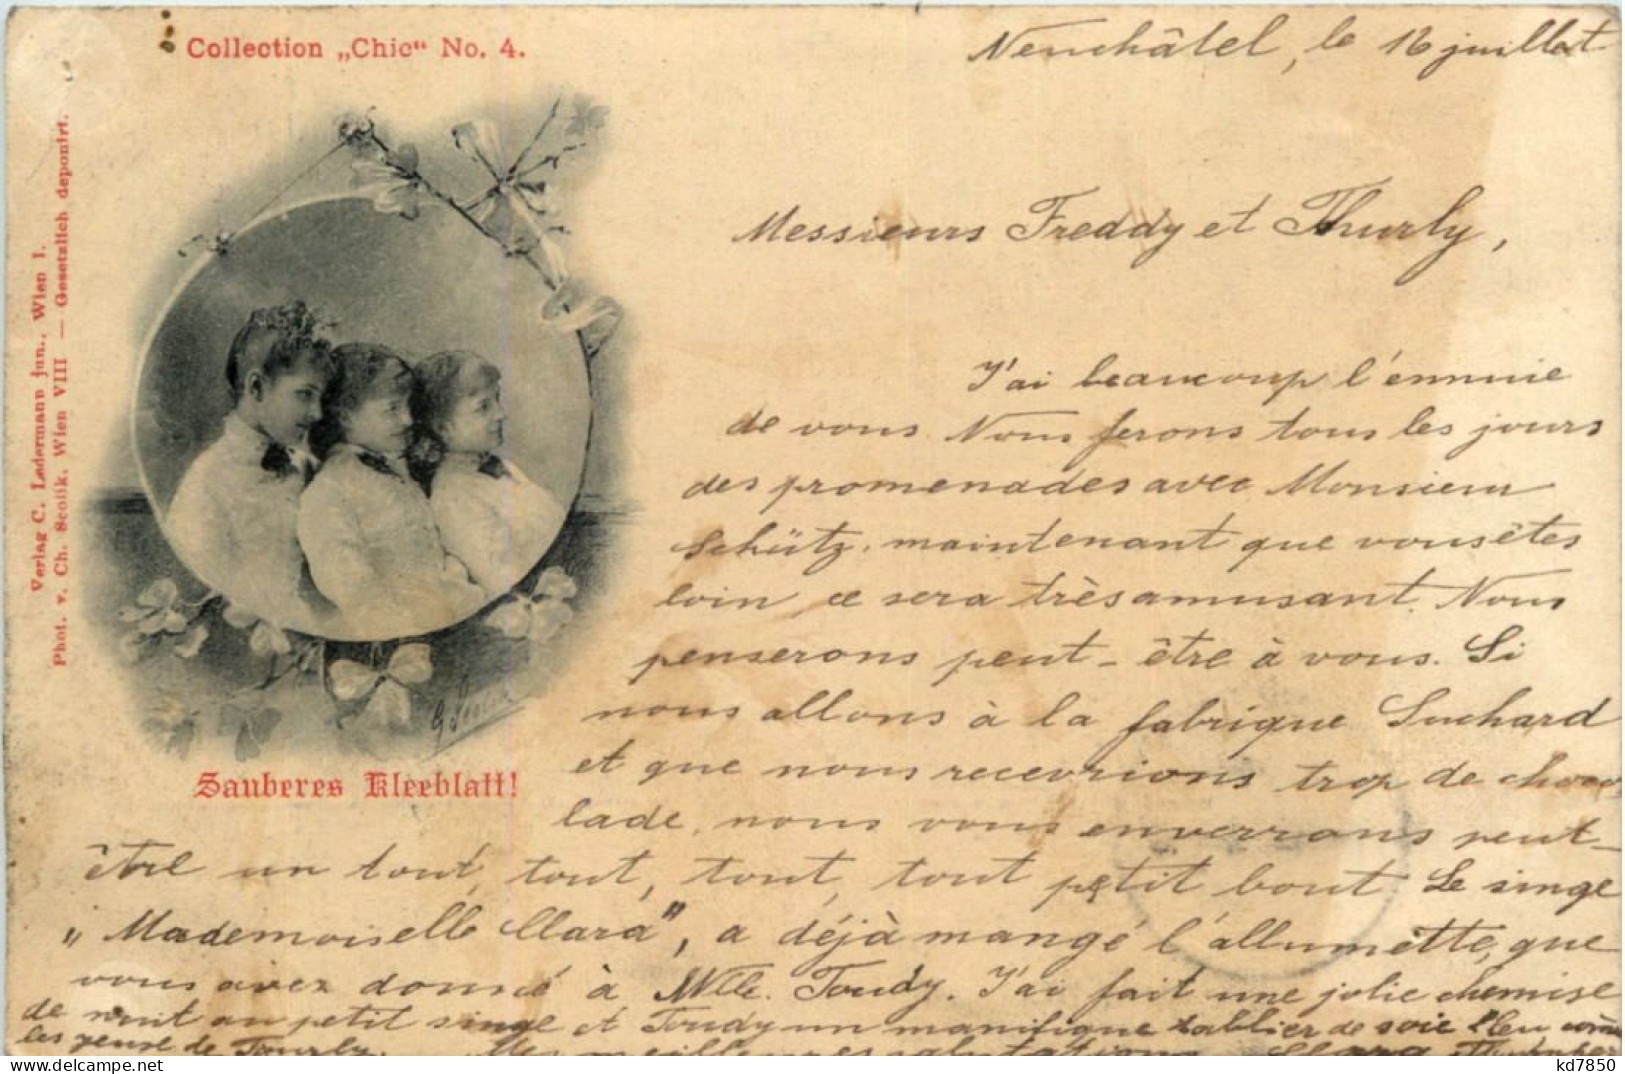 Collection „Chic“ No. 4.
Neuchâtel, le 16 juillet
Verlag C. Ledermann jun., Wien I.
Phot. v. Ch. Scolik, Wien VIII — Gesetzlich deponirt.
Messieurs Freddy et Thurly,
J'ai beaucoup l'ennuie
de vous. Nous ferons tous les jours
des promenades avec Monsieur
Schütz, maintenant que vous êtes
loin ce sera très amusant. Nous
penserons peut-être à vous. Si
nous allons à la fabrique Suchard
et que nous recevrions trop de choco
lade, nous vous enverrons peut-
être un tout, tout, tout, tout petit bout. Le singe
„Mademoiselle Clara", a déjà mangé l'allumette, que
vous avez donné à Mlle. Toudy. J'ai fait une jolie chemise
de nuit au petit singe et Toudy un manifique tablier de soie bleu comme
les yeux de Tourly.
Sauberes Kleeblatt!
kd7850